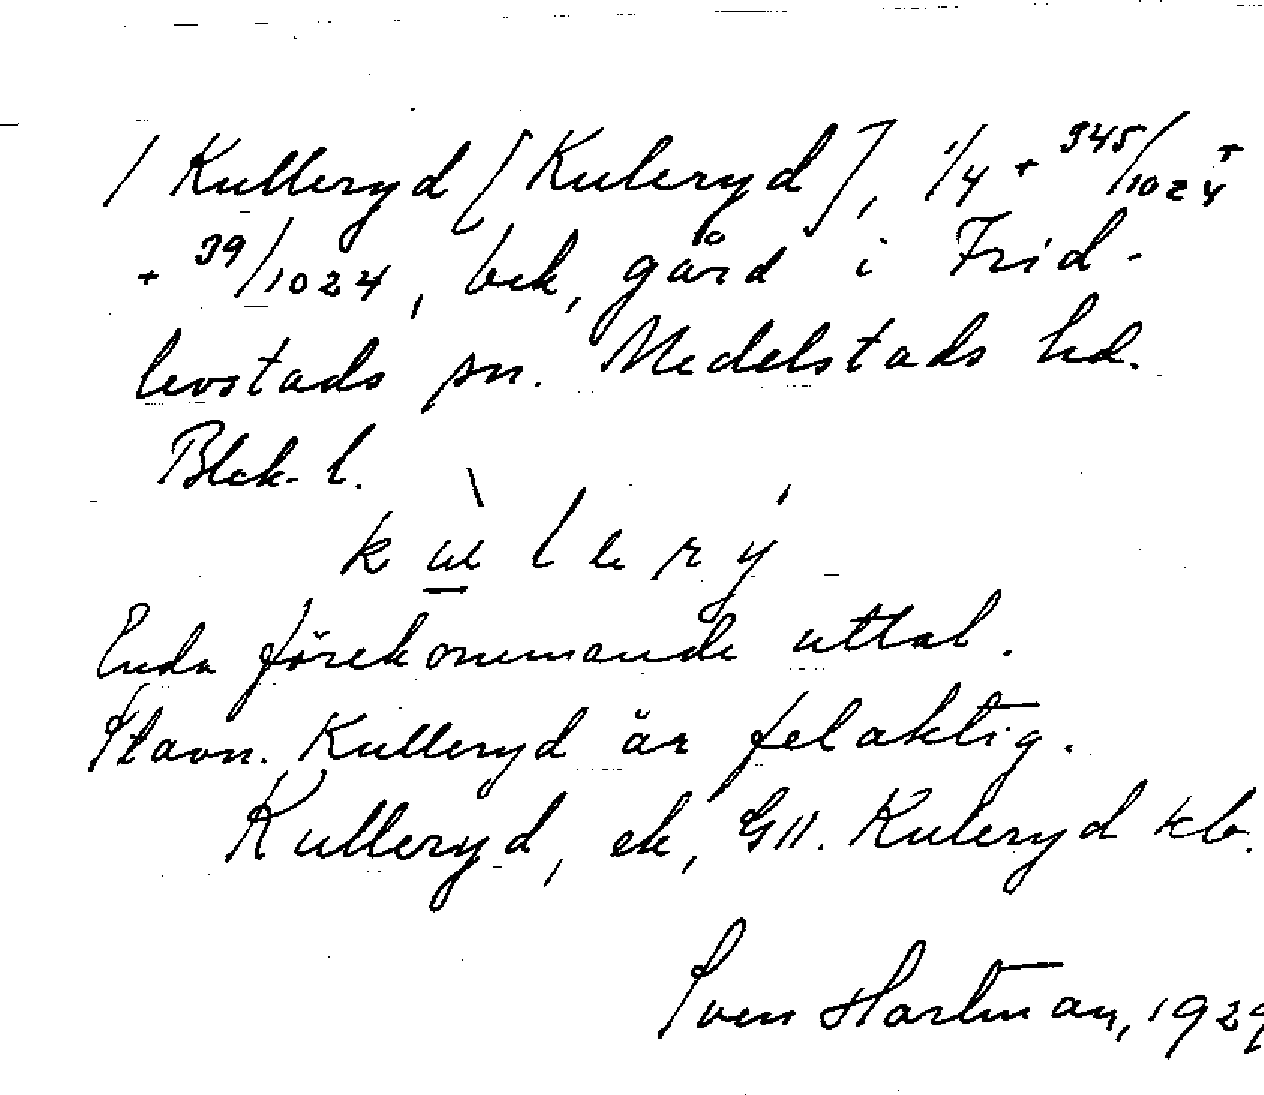 / Kulleryd [Kuleryd], 1/4 + 345/1024 +
+ 39/1024, bek, gård i Frid-
levstads sn. Medelstads hd.
Blek. l.
kùlerý
Enda förekommande uttal.
Stavn. Kulleryd är felaktig.
Kulleryd, ek, GII. Kuleryd kb.
Sven Hartman, 1929